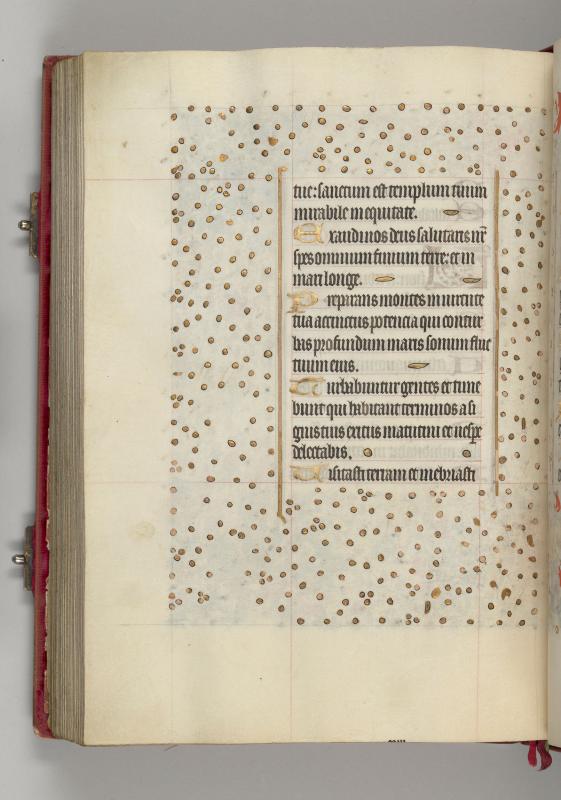 tue: sanctum est templum tuum
mirabile in equitate.
Exaudi nos deus salutaris nr̄
spes omnium finium terre: et in
mari longe.
Preparans montes in virtute
tua accinctus potencia qui contur
bas profundum maris sonum fluc
tuum eius.
Turbabuntur gentes et time
bunt qui habitant terminos a si
gnis tuis exitus matutini et vespe
delectabis.
Visitasti terram et inebriasti